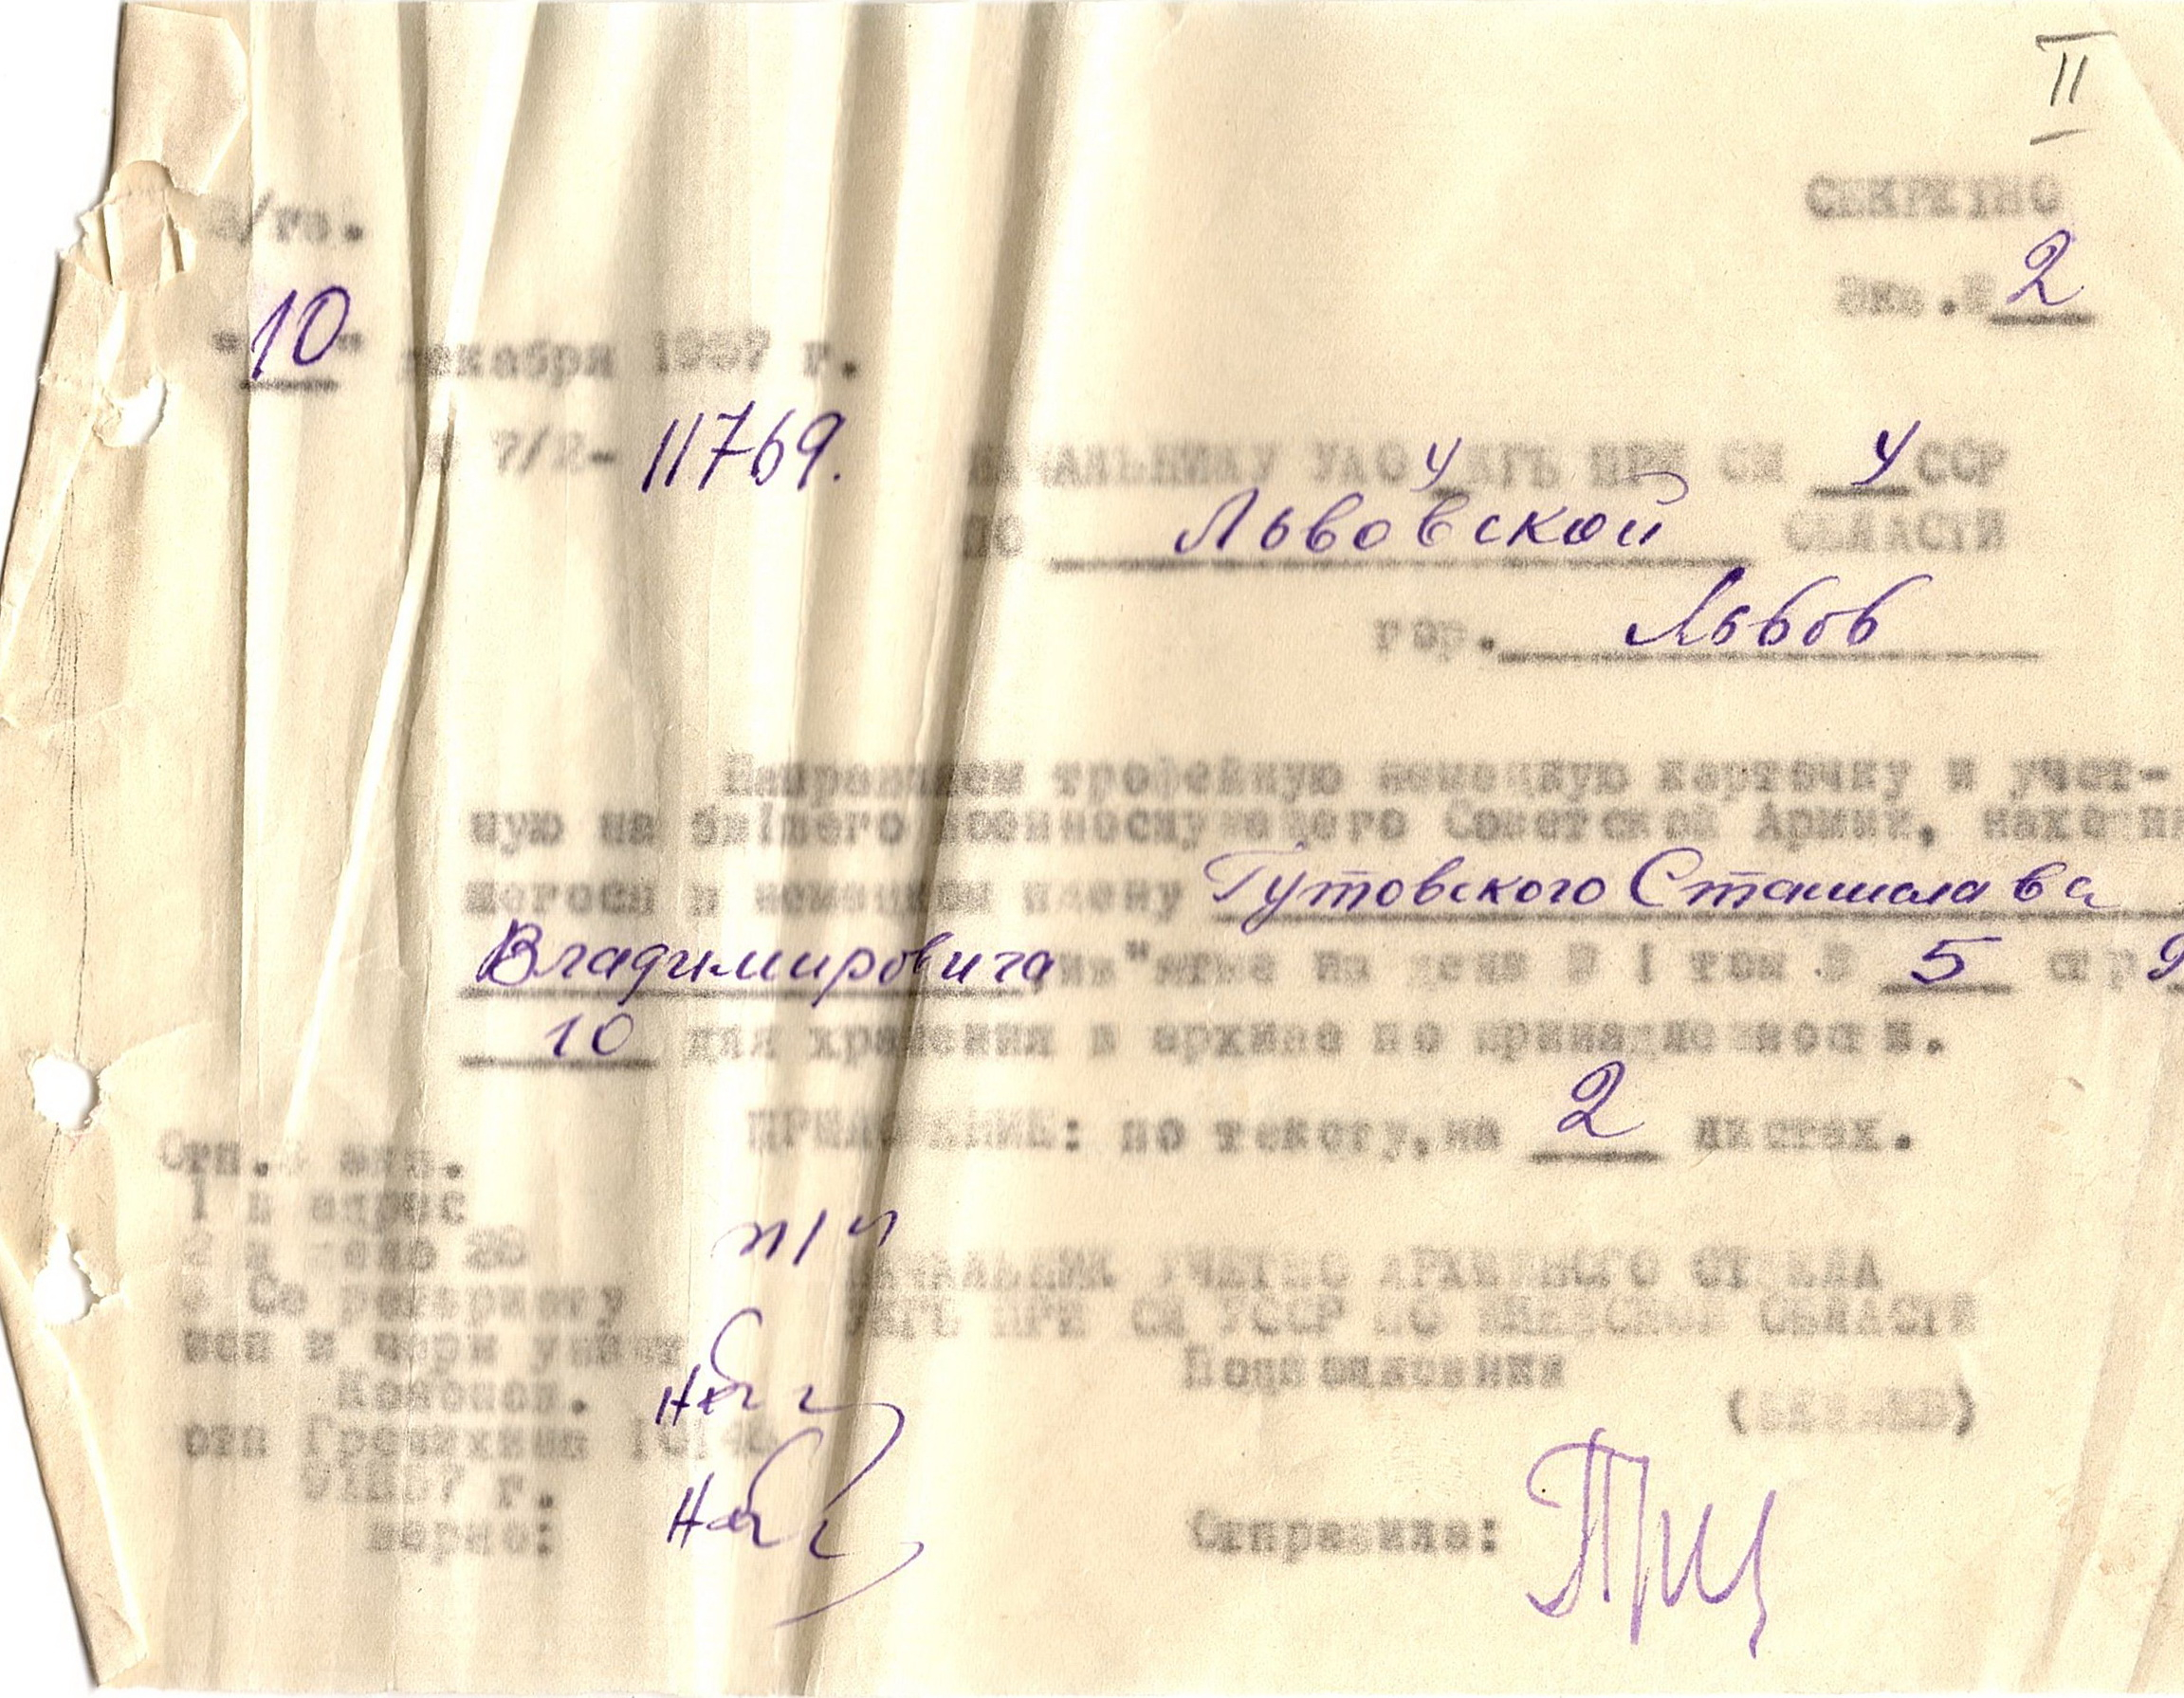 II
СЕКРЕТНО
в/га.
Экз.№ 2
"10" декабря 1957 г.
7/2- 11769.
НАЧАЛЬНИКУ УАО УКГБ ПРИ СМ УССР
ПО Львовской ОБЛАСТИ
гор. Львов
Направляем трофейную немецкую карточку и учет-
ную на бывшего военнослужащего Советской Армии, находив
шегося в немецком плену Гутовского Станислава
Владимировича "мтье на деле № 1 том № 5 стр 9
10 для хранения в архиве по принадлежности.
ПРИЛОЖЕНИЕ: по тексту, на 2 листах.
Отп. экз.
1 в адрес
2 в дело 28
п/п
НАЧАЛЬНИК УЧЕТНО АРХИВНОГО ОТДЕЛА
УКГБ ПРИ СМ УССР ПО КИЕВСКОЙ ОБЛАСТИ
Подполковник
исп и черн унист
Кононов.
отп
91257 г.
верно:
Отправила: